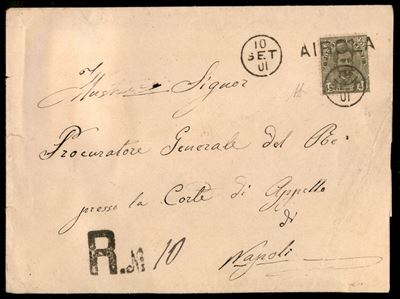 10
SET
01
AIROLA
01
Illustrissimo Signor
Procuratore Generale del Re
presso la Corte di Appello
di
Napoli
R. No 10